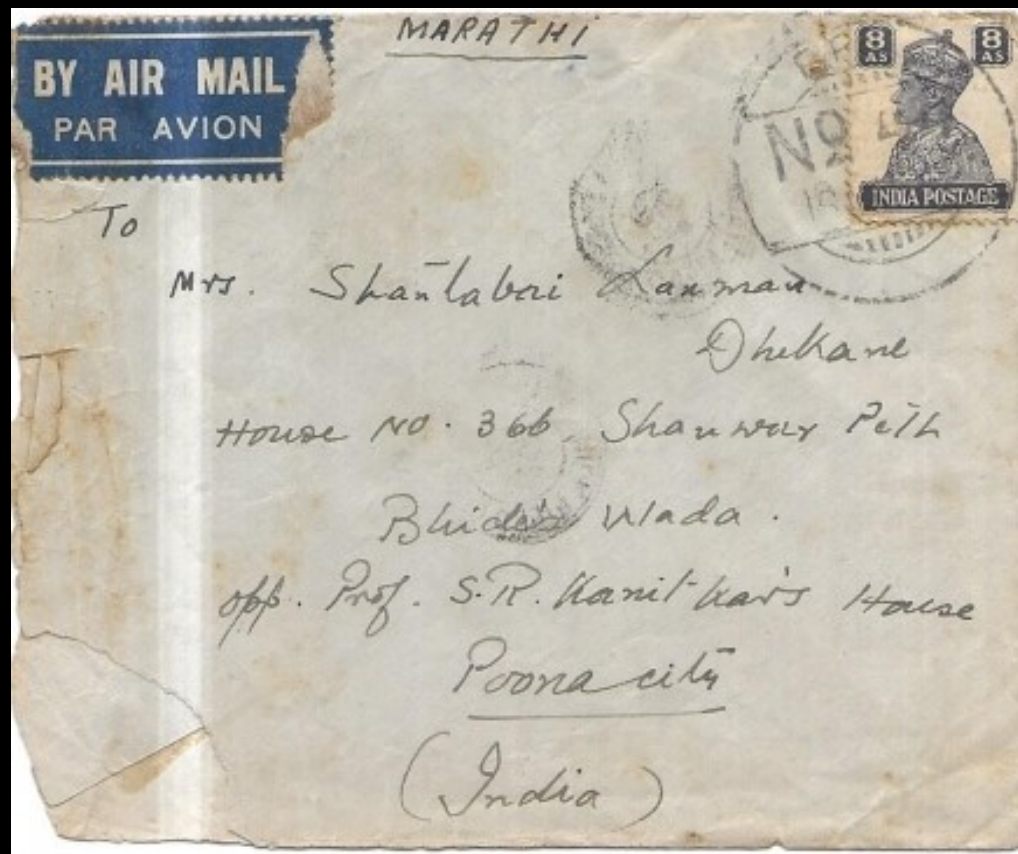 MARATHI
BY AIR MAIL
PAR AVION
8 AS 8 AS
INDIA POSTAGE
No
To
Mrs. Shantabai Laxman
Dhekane
House No. 366, Shanwar Peth
Bhide's Wada.
opp. Prof. S. R. Kanitkar's House
Poona city
(India)